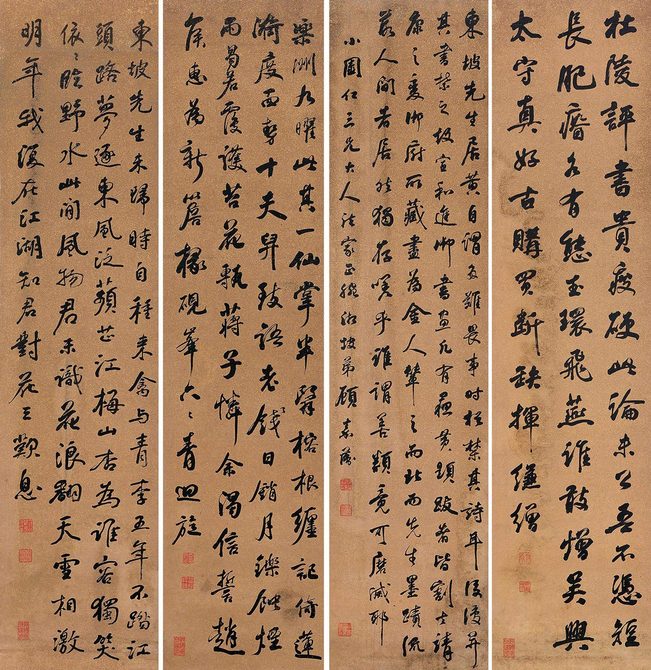 杜陵評書貴瘦硬此論未公吾不憑短
長肥瘠各有態玉環飛燕誰敢憎吳興
太守真好古購買斷缺揮縑繒
東坡先生居黃自謂多難畏事時祇禁其詩耳後復并
其書禁之故宣和進御書畫凡有蘇黃題跋者皆割去靖
康之變御府所藏盡為金人輦之而北而先生墨蹟流
落人間者居然獨存嗟乎誰謂善類竟可磨滅耶
小園仁三兄大人法家正 弟顧嘉蘅
藥洲九曜此其一仙掌半臂榕根纏記倚蓮
漪度面勢十夫舁致語老錢日銷月鑠蝕煙
雨曷若覆護苔花甎蔣子憐余渴信誓趙
侯惠為新簷椽硯峯六六青迴旋
東坡先生未歸時自種來禽與青李五年不踏江
頭路夢逐東風泛蘋芷江梅山杏為誰容獨笑
依依臨野水此間風物君未識花浪翻天雪相激
明年我復在江湖知君對花三歎息